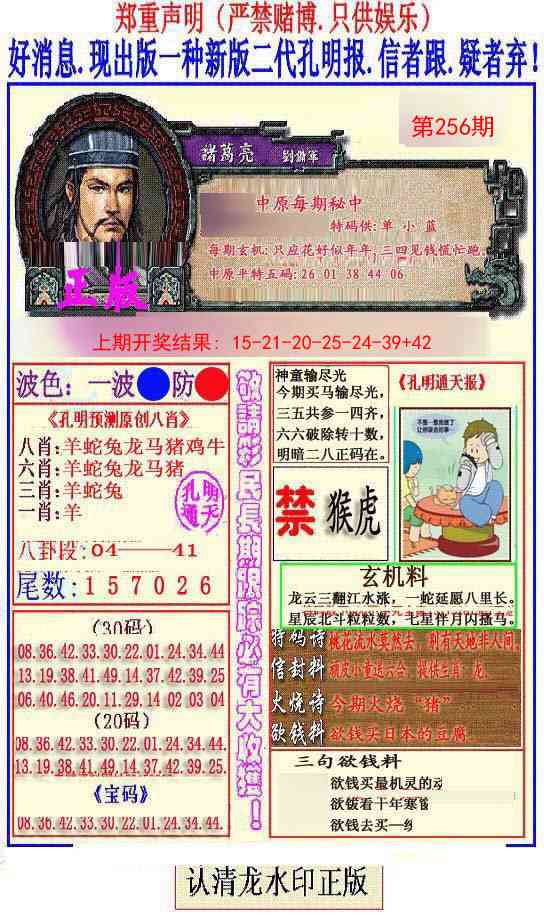 郑重声明（严禁赌博.只供娱乐）
好消息.现出版一种新版二代孔明报.信者跟.疑者弃！
第256期
諸葛亮
中原每期秘中
特码供:单 小 蓝
每期玄机:只应花好似年年,三四见钱慌忙跑.
中原平特五码:26 01 38 44 06
正版
上期开奖结果: 15-21-20-25-24-39+42
波色: 一波 防
《孔明预测原创八肖》
八肖:羊蛇兔龙马猪鸡牛
六肖:羊蛇兔龙马猪
三肖:羊蛇兔
一肖:羊
孔明
通天
八卦段:04——41
尾数:157026
(30码)
08.36.42.33.30.22.01.24.34.44
13.19.38.41.49.14.37.42.39.25
06.40.46.20.11.29.14 02.03 04
(20码)
08.36.42.33.30.22.01.24.34.44.
13.19.38.41.49.14.37.42.39.25.
《宝码》
08.36.42.33.30.22.01.24.34.44.
敬請彩民長期跟踪必有大收獲！
神童输尽光
今期买马输尽光，
三五共参一四齐，
六六破除转十数，
明暗二八正码在。
《孔明通天报》
禁
猴虎
玄机料
龙云三翻江水涨，一蛇延愿八里长。
星辰北斗粒粒数，七星伴月闪搔鸟。
特码诗
桃花流水窅然去，别有天地非人间
信封料
顽皮小童送六合，提供三肖：龙、
火烧诗
今期火烧“猪”
欲钱料
欲钱买日本的豆腐
三句欲钱料
欲钱买最机灵的动
欲钱看十年寒窗
欲钱去买一
认清龙水印正版